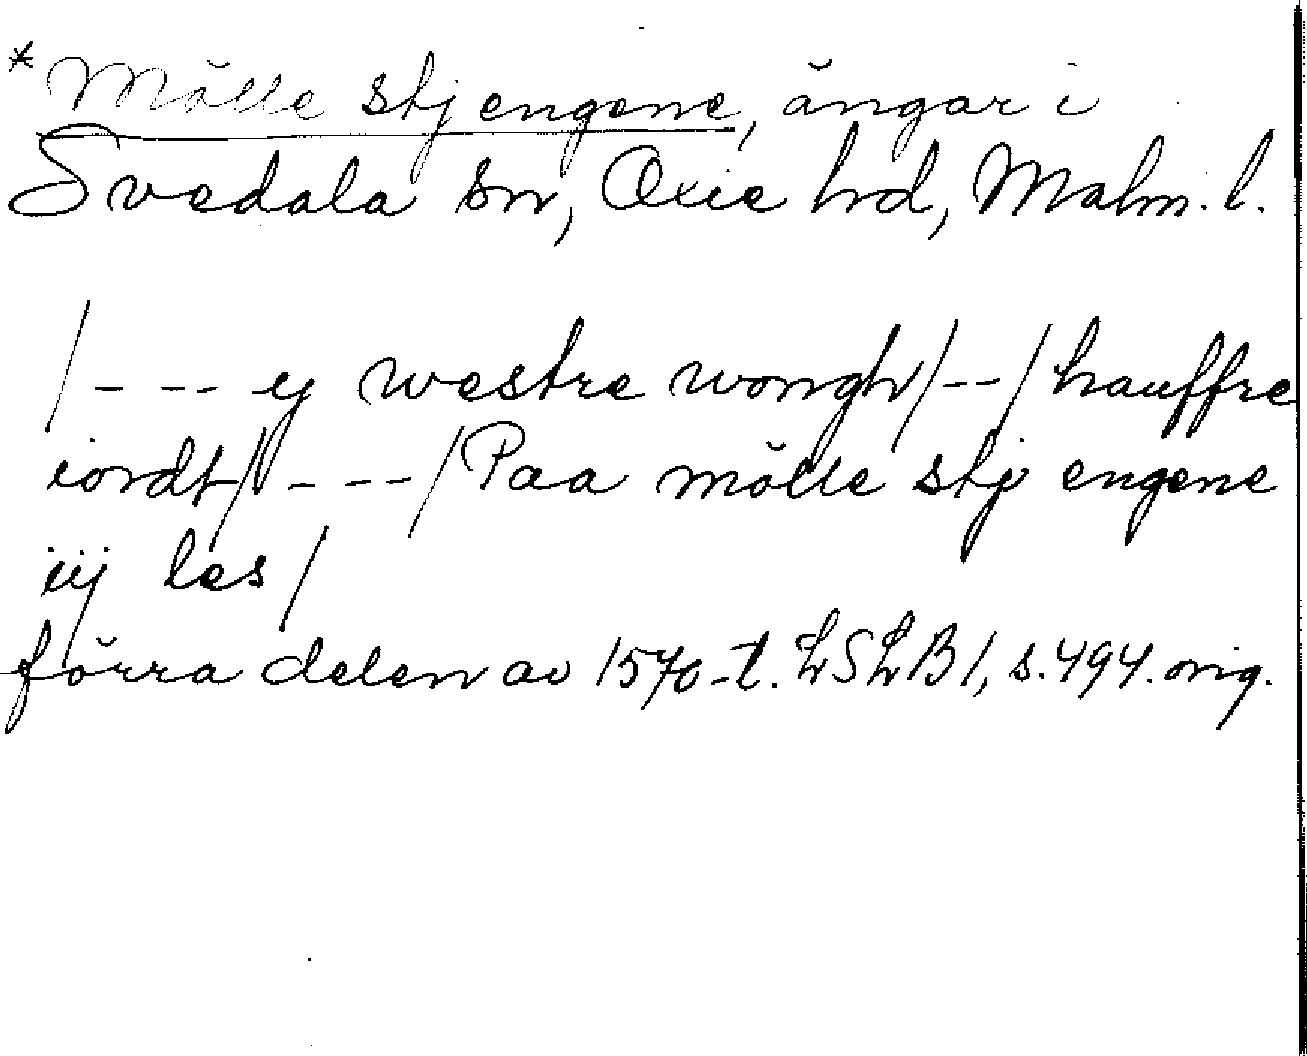 *Mölle stj engene, ängar i
Svedala sn, Oxie hd, Malm. l.
/- -- ej westre wongh/--/hauffre
iordt/ - --/Paa mölle stje engene
iij les/
förra delen av 1570-t. LSLB 1, s. 494. orig.